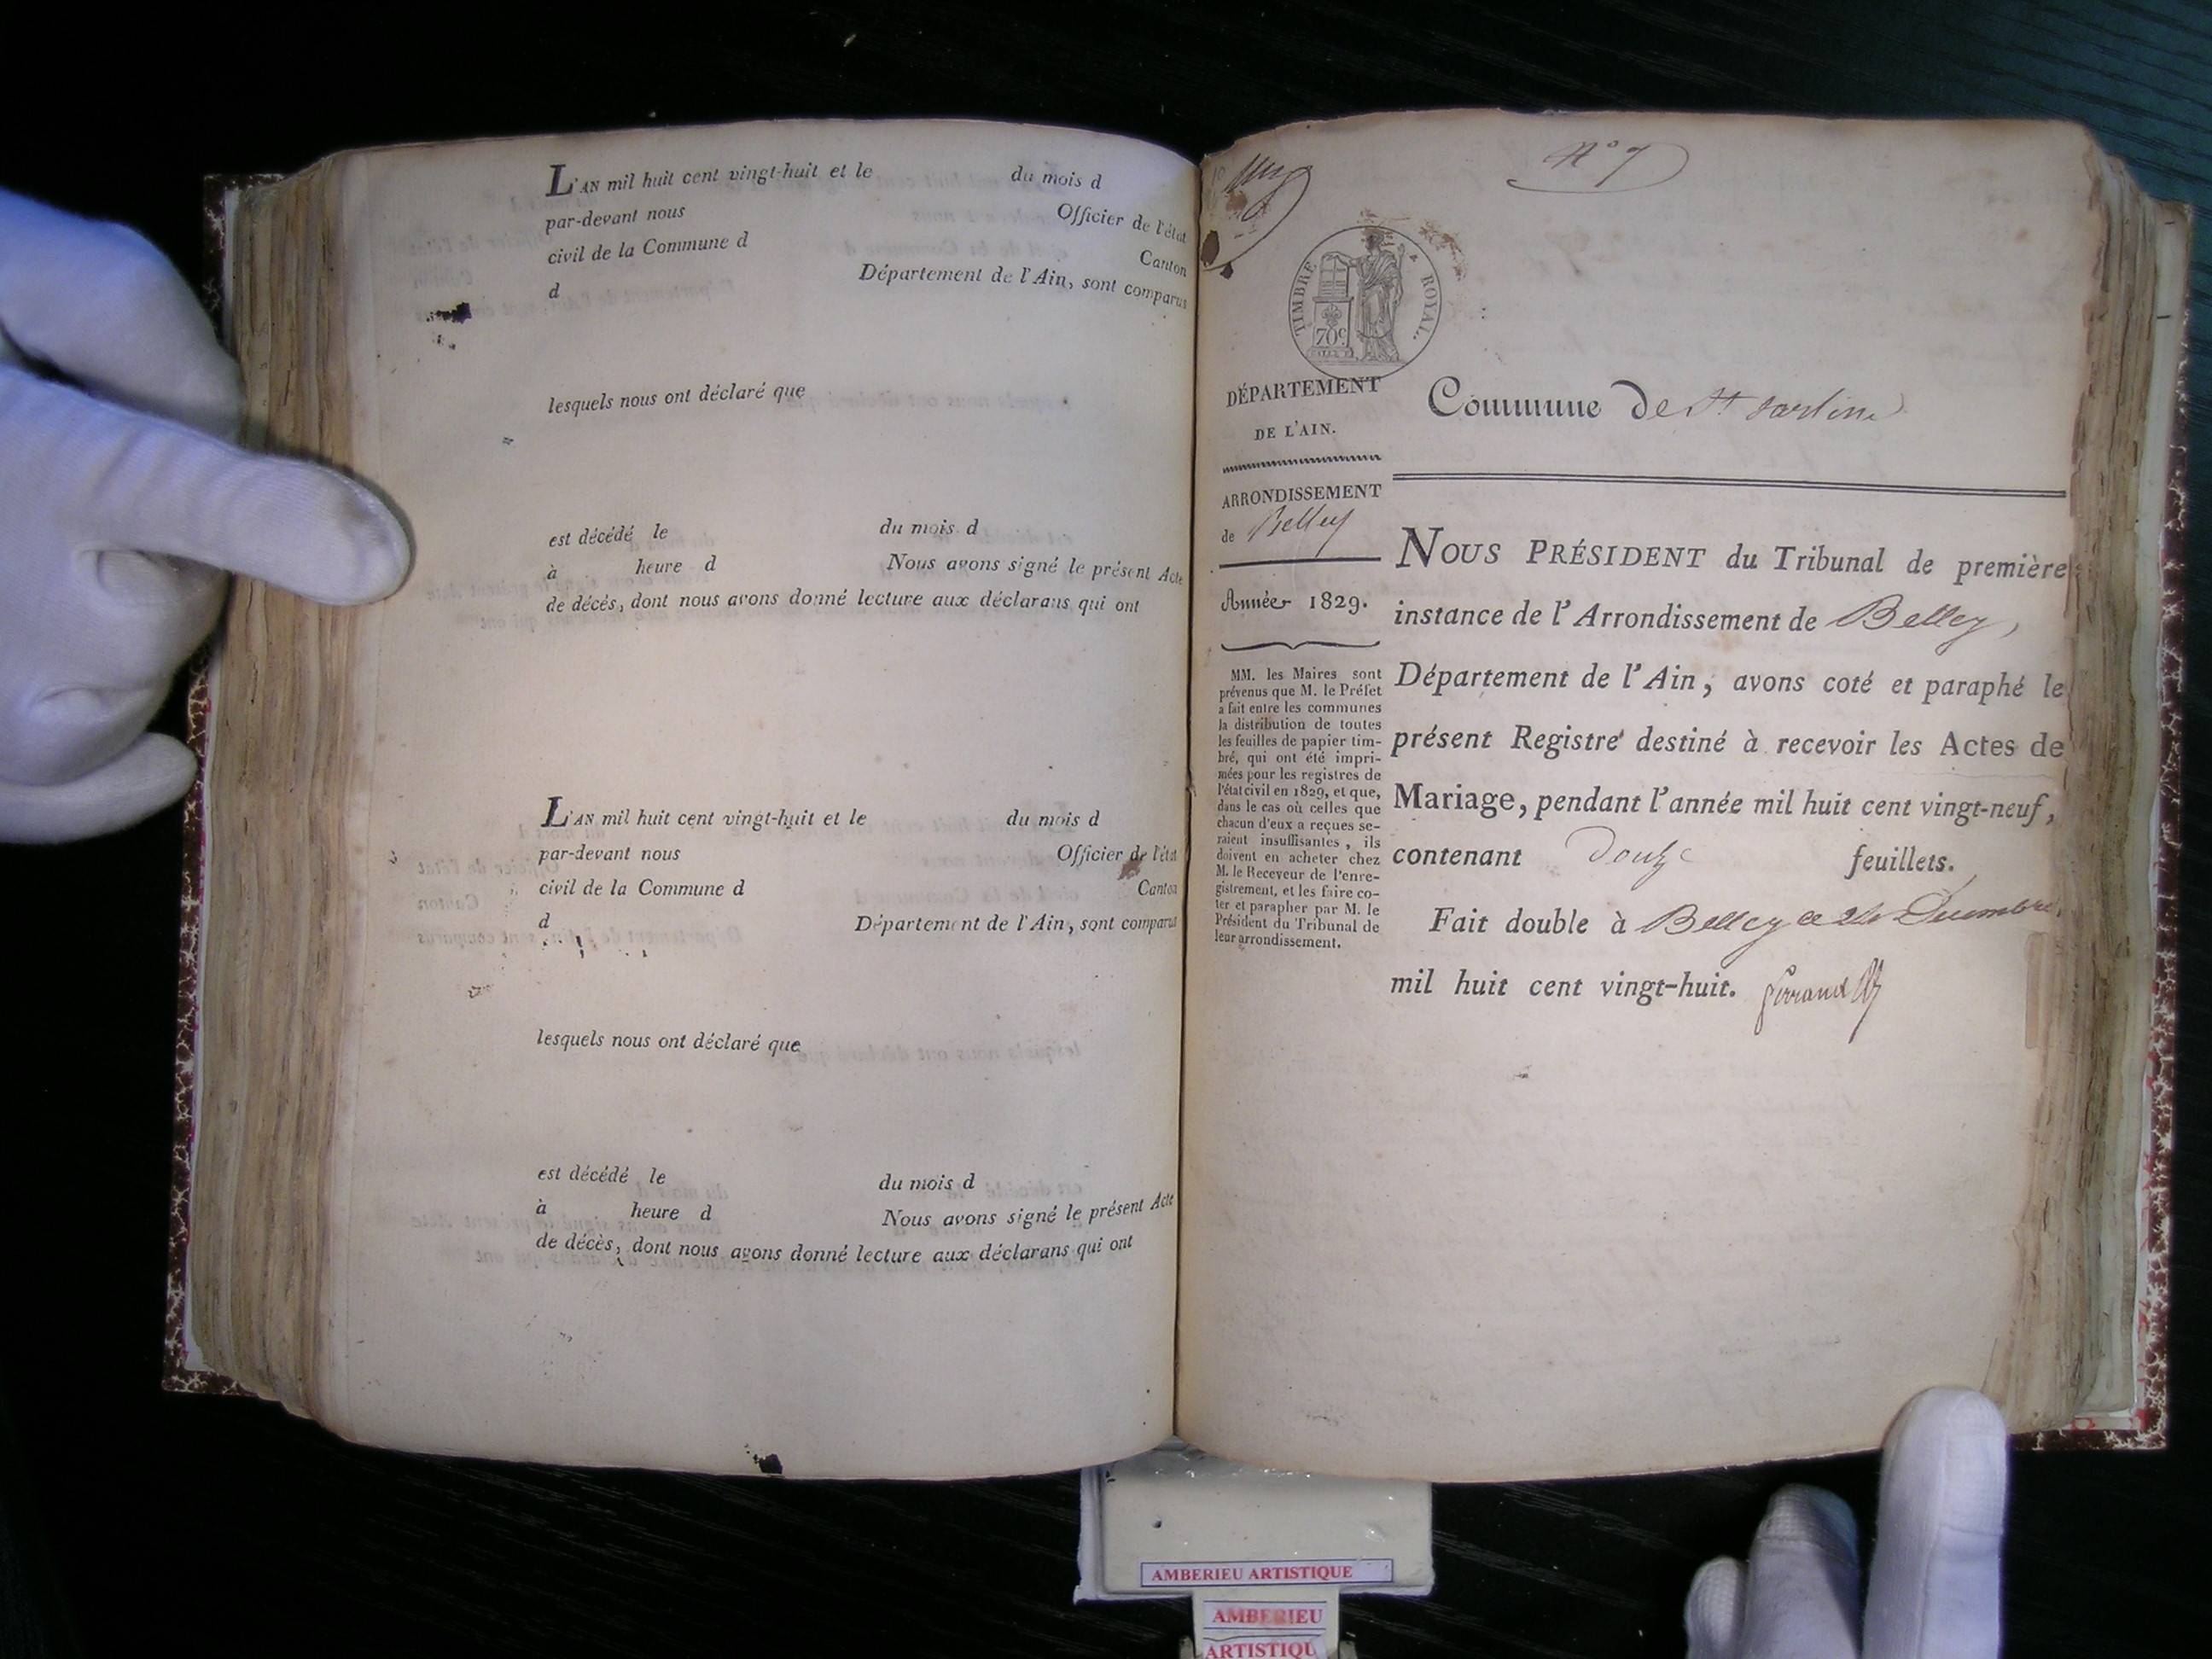 L'AN mil huit cent vingt-huit et le du mois d
par-devant nous Officier de l'état
civil de la Commune d Canton
d Département de l'Ain, sont comparus
lesquels nous ont déclaré que
est décédé le du mois d
à heure d Nous avons signé le présent Acte
de décès, dont nous avons donné lecture aux déclarans qui ont
L'AN mil huit cent vingt-huit et le du mois d
par-devant nous Officier de l'état
civil de la Commune d Canton
d Département de l'Ain, sont comparus
lesquels nous ont déclaré que
est décédé le du mois d
à heure d Nous avons signé le présent Acte
de décès, dont nous avons donné lecture aux déclarans qui ont
N° 7
TIMBRE ROYAL.
70c
DÉPARTEMENT
DE L'AIN.
ARRONDISSEMENT
de Belley
Année 1829.
MM. les Maires sont
prévenus que M. le Préfet
a fait entre les communes
la distribution de toutes
les feuilles de papier tim-
bré, qui ont été impri-
mées pour les registres de
l'état civil en 1829, et que,
dans le cas où celles que
chacun d'eux a reçues se-
raient insuffisantes, ils
doivent en acheter chez
M. le Receveur de l'enre-
gistrement, et les faire co-
ter et parapher par M. le
Président du Tribunal de
leur arrondissement.
Commune de St
NOUS PRÉSIDENT du Tribunal de première
instance de l'Arrondissement de Belley,
Département de l'Ain, avons coté et paraphé le
présent Registre destiné à recevoir les Actes de
Mariage, pendant l'année mil huit cent vingt-neuf,
contenant douze feuillets.
Fait double à Belley ce Decembre
mil huit cent vingt-huit.
AMBERIEU ARTISTIQUE
AMBERIEU
ARTISTIQU